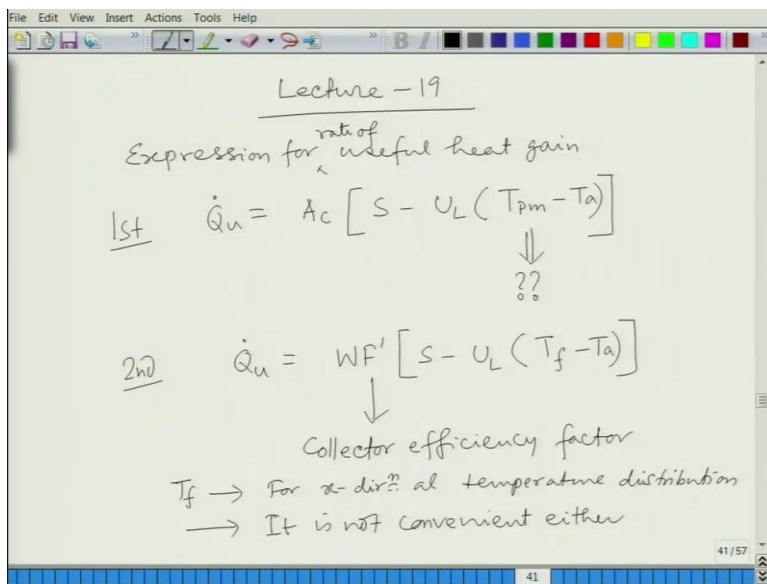 File Edit View Insert Actions Tools Help
B I
Lecture - 19
Expression for rate of useful heat gain
1st Q̇u = Ac [S - UL (Tpm - Ta)]
⇓
??
2nd Q̇u = WF' [S - UL (Tf - Ta)]
↓
Collector efficiency factor
Tf → For x-dirⁿ al temperature distribution
→ It is not convenient either
41/57
41